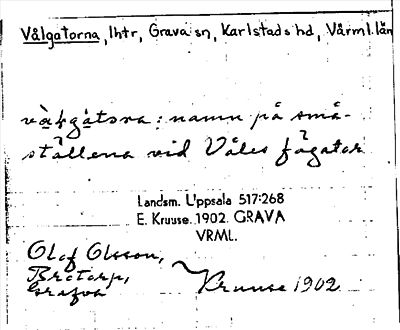 Vålgatorna, lhtr, Grava sn, Karlstads hd, Värml. län
vå̀ɫgå̀tᴏra: namn på små-
ställena vid Våles fägator
Landsm. Uppsala 517:268
E. Kruuse. 1902. GRAVA
VRML.
Olof Olsson,
Bråtarp,
Grafva
Kruuse 1902